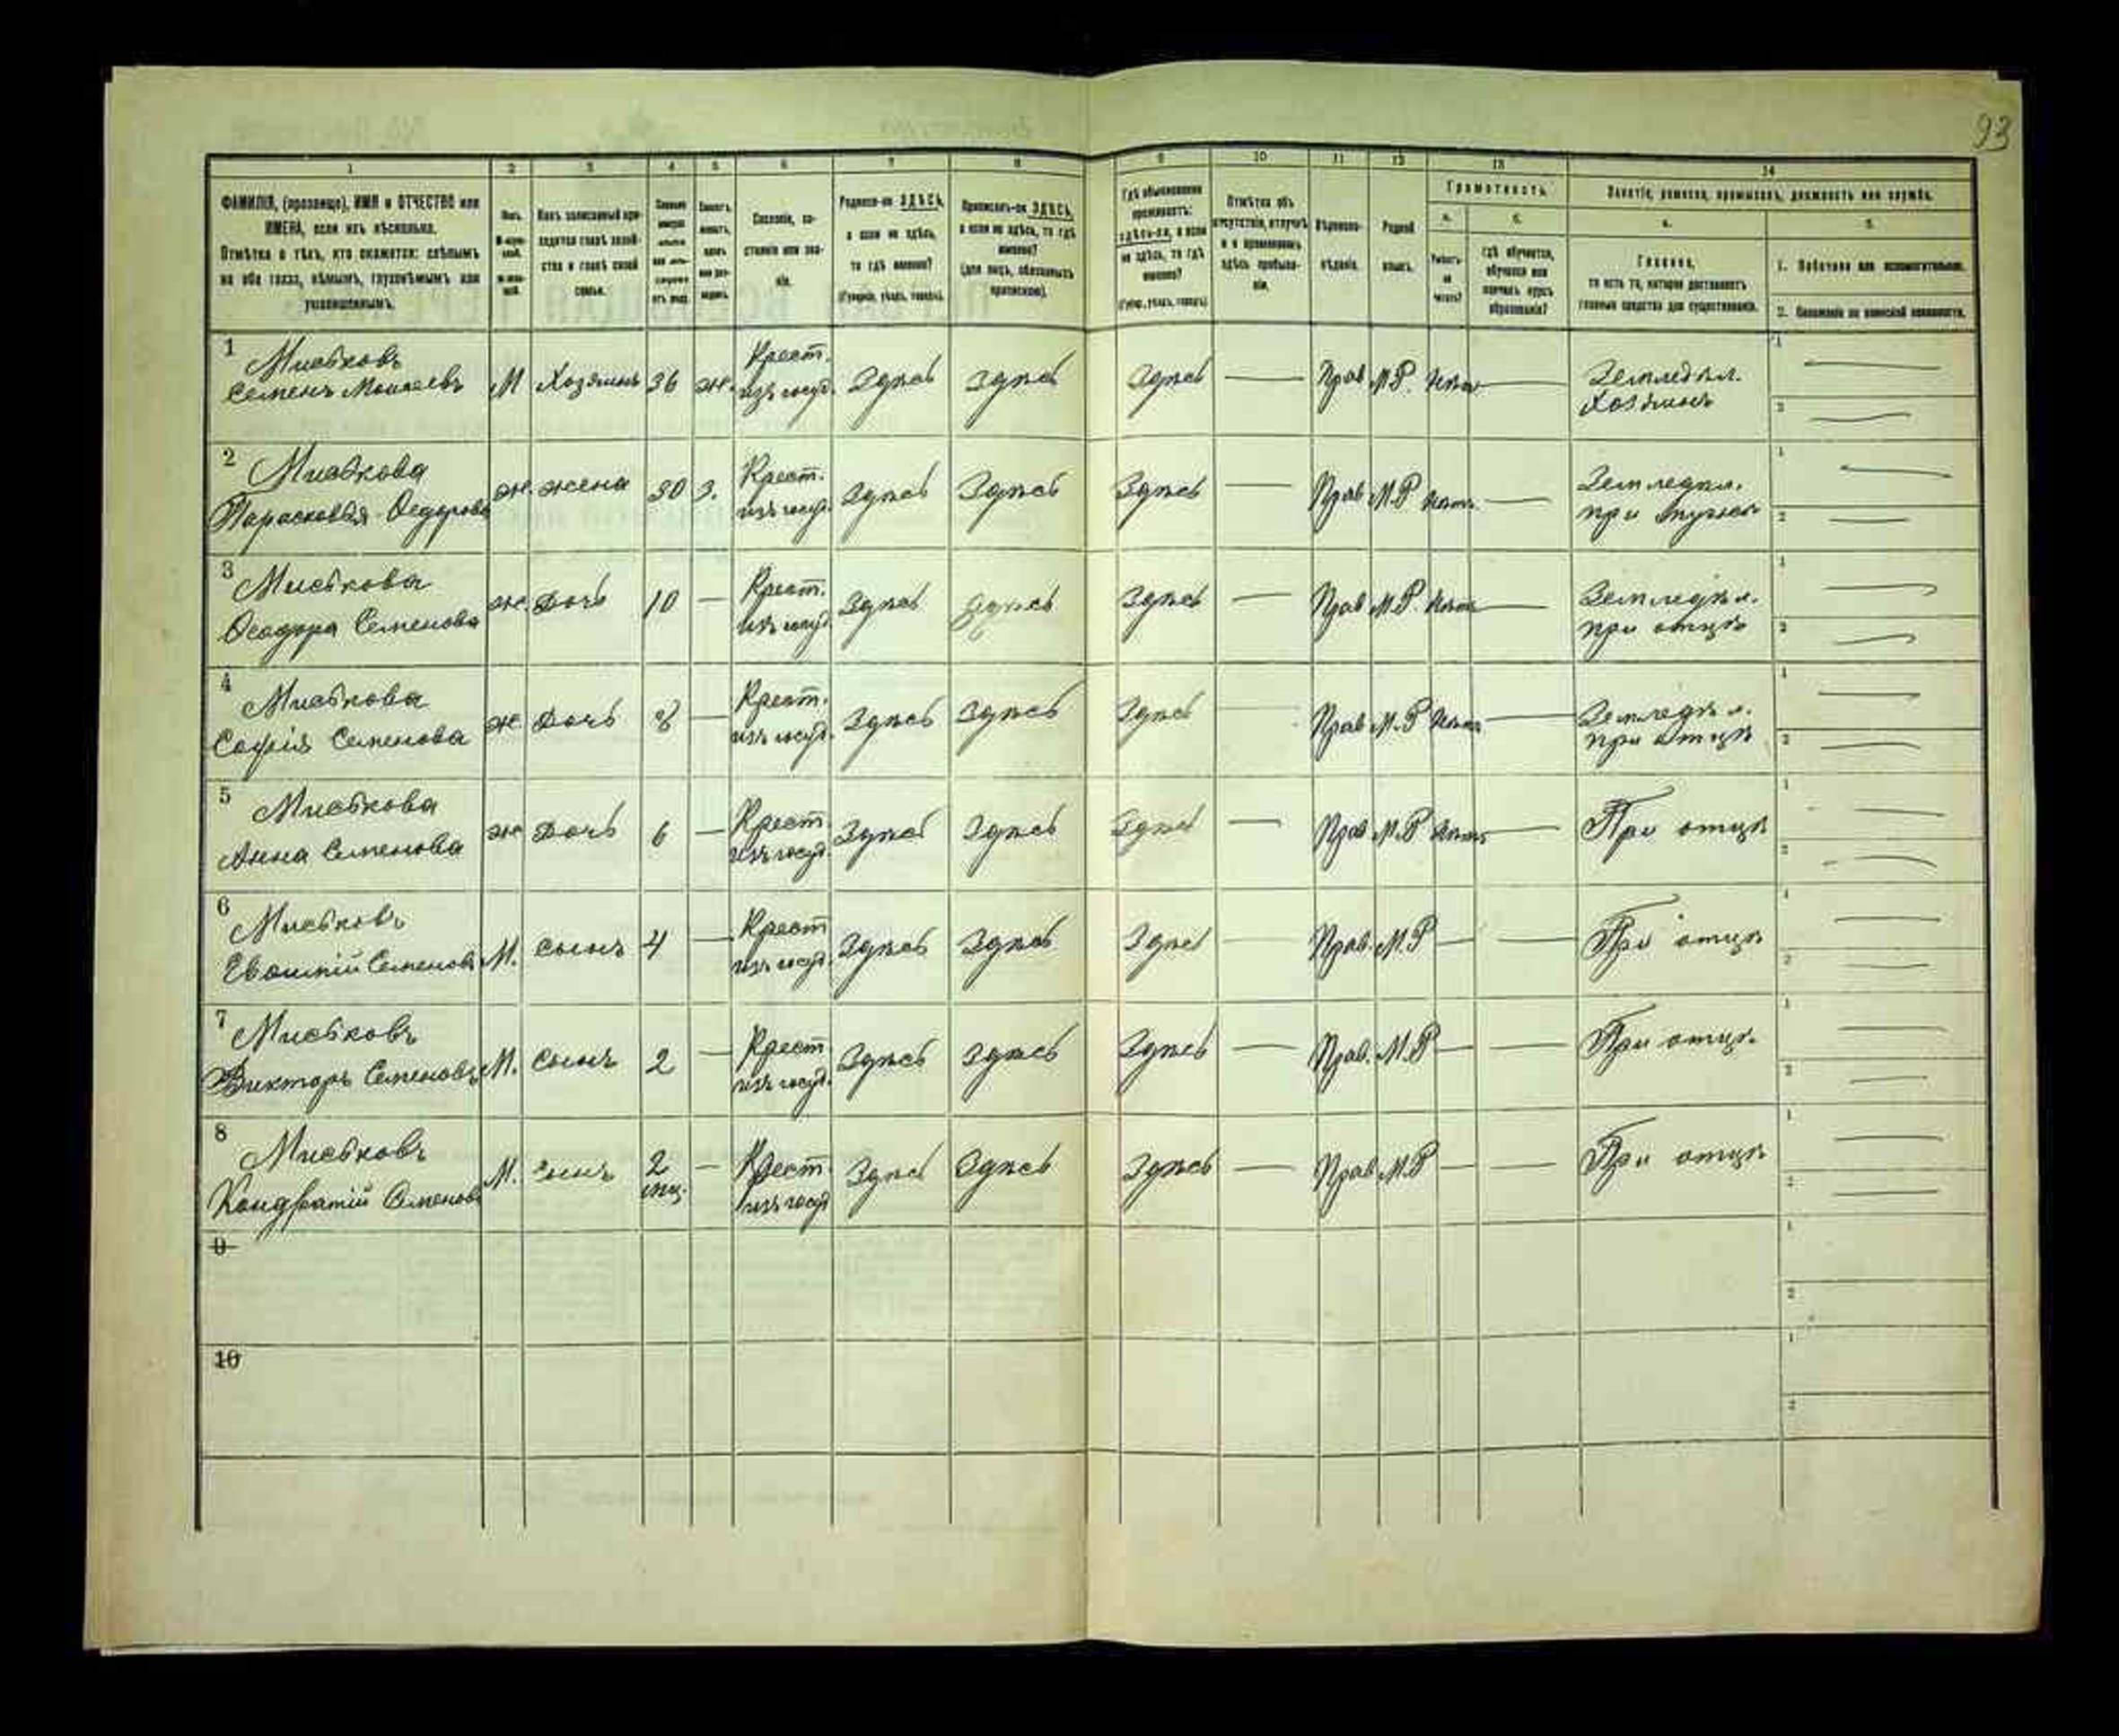 93
1 2 3 4 5 6 7 8 9 10 11 12 13 14
ФАМИЛІЯ, (прозвище), ИМЯ и ОТЧЕСТВО или
ИМЕНА, если ихъ нѣсколько.
Отмѣтка о тѣхъ, кто окажется: слѣпымъ
на оба глаза, нѣмымъ, глухонѣмымъ или
умалишеннымъ.
Полъ.
Какъ записанный при-
ходится главѣ хозяй-
ства и главѣ своей
семьи.
Сословіе, со-
стояніе или зва-
ніе.
Родился-ли ЗДѢСЬ,
а если не здѣсь,
то гдѣ именно?
(Губернія, уѣздъ, городъ).
Приписанъ-ли ЗДѢСЬ,
а если не здѣсь, то гдѣ
именно?
(для лицъ, обязанныхъ
припискою).
Гдѣ обыкновенно
проживаетъ:
здѣсь-ли, а если
не здѣсь, то гдѣ
именно?
(Губер., уѣздъ, городъ)
Отмѣтка объ
отсутствіи, отлучкѣ
и о временномъ
здѣсь пребыва-
ніи.
Вѣроиспо-
вѣданіе.
Родной
языкъ.
Грамотность.
а.
Умѣетъ-
ли
читать?
б.
Гдѣ обучается,
обучался или
кончилъ курсъ
образованія?
Занятіе, ремесло, промыселъ, должность или служба.
а.
Главное,
то есть то, которое доставляетъ
главныя средства для существованія.
б.
1. Побочное или вспомогательное.
2. Положеніе по воинской повинности.
1 Миськовъ
Семенъ Моисеевъ М Хозяинъ 36 ж. Крест. изъ госуд. Здѣсь Здѣсь Здѣсь — Прав М.Р. Нѣтъ — Земледѣл. Хозяинъ
2 Миськова
Парасковья Федорова ж. жена 30 З. Крест. изъ госуд. Здѣсь Здѣсь Здѣсь — Прав М.Р Нѣтъ — Земледѣл. при мужѣ
3 Миськова
Феодора Семенова ж. Дочь 10 — Крест. изъ госуд. Здѣсь Здѣсь Здѣсь — Прав М.Р. Нѣтъ — Земледѣл. при отцѣ
4 Миськова
Софія Семенова ж. Дочь 8 — Крест. изъ госуд. Здѣсь Здѣсь Здѣсь — Прав М.Р Нѣтъ — Земледѣл. при отцѣ
5 Миськова
Анна Семенова ж Дочь 6 — Крест. изъ госуд. Здѣсь Здѣсь Здѣсь — Прав М.Р Нѣтъ — При отцѣ
6 Миськовъ
Евстпій Семеновъ М. сынъ 4 — Крест изъ госуд. Здѣсь Здѣсь Здѣсь — Прав. М.Р — — При отцѣ
7 Миськовъ
Викторъ Семеновъ М. Сынъ 2 — Крест изъ госуд. Здѣсь Здѣсь Здѣсь — Прав. М.Р — — При отцѣ
8 Миськовъ
Кондратій Семеновъ М. Сынъ 2 мц. — Крест изъ госуд Здѣсь Здѣсь Здѣсь — Прав М.Р — — При отцѣ
9
10